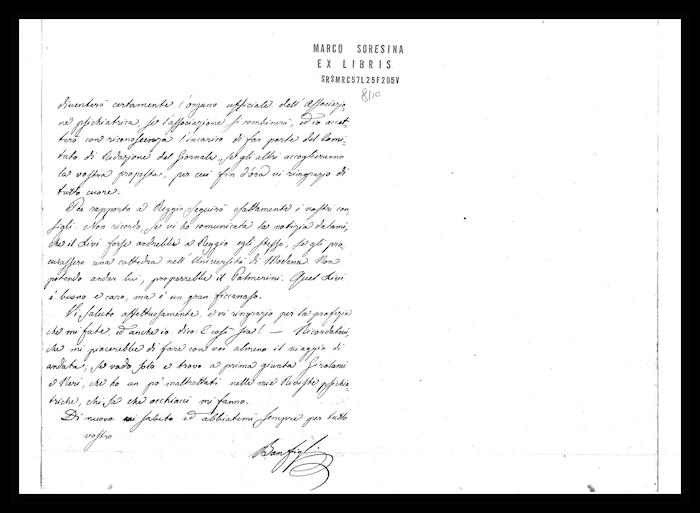 MARCO SORESINA
EX LIBRIS
SRSMRC57L25F205V
8/10
diventerà certamente l'organo ufficiale dell'Associazio-
ne psichiatrica, se l'associazione si combinerà, ed io accet-
terò con riconoscenza l'incarico di far parte del Comi-
tato di Redazione del Giornale, se gli altri accoglieranno
la vostra proposta, per cui fin d'ora vi ringrazio di
tutto cuore.
Per rapporto a Reggio seguirò esattamente i vostri con-
sigli. Non ricordo, se vi ho comunicata la notizia datami,
che il Livi forse andrebbe a Reggio egli stesso, se gli pro-
curassero una cattedra nell'Università di Modena. Non
potendo andar lui, proporrebbe il Palmerini. Quel Livi
è buono e caro, ma è un gran ficcanaso.
Vi saluto affettuosamente, e vi ringrazio per la profezia
che mi fate, ed anche io dico: E così sia! — Ricordatevi,
che mi piacerebbe di fare con voi almeno il viaggio di
andata; se vado solo e trovo a prima giunta Girolami
e Neri, che ho un po' maltrattati nelle mie Riviste psichia-
triche, chi sa che occhiacci mi fanno.
Di nuovo vi saluto ed abbiatemi sempre per tutto
vostro
Bonfigli